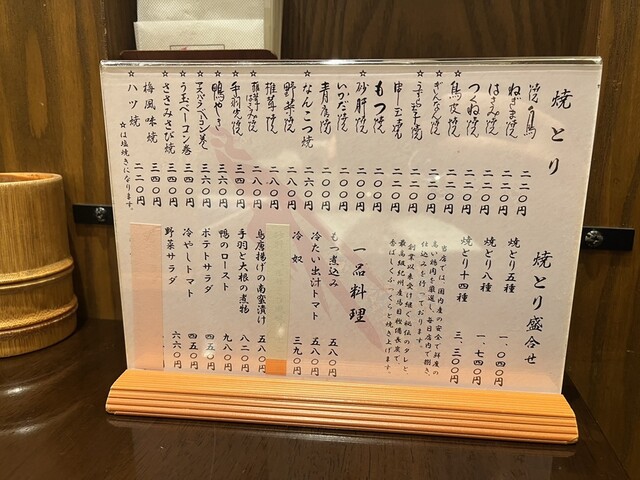 焼とり
ねぎま焼 二二〇円
はさみ焼 二二〇円
つくね焼 二二〇円
☆鳥皮焼 二二〇円
☆ぎんなん焼 二二〇円
もつ焼 二二〇円
☆砂肝焼
いかだ焼
青唐焼
☆なんこつ焼 二六〇円
野菜焼 二八〇円
椎茸焼 二八〇円
☆手羽先焼 三四〇円
☆鴨やき 三六〇円
☆アスパラベーコン巻 三六〇円
☆う玉ベーコン巻 三四〇円
☆ささみさび焼 三四〇円
梅風味焼 三四〇円
☆ハツ焼 二二〇円
☆は塩焼きになります。
焼とり盛合せ
焼とり五種 一、〇四〇円
焼とり八種 一、七四〇円
焼とり十四種 三、三〇〇円
当店では、国内産の安全で鮮度の
高い鶏肉を厳選し、毎日店内で捌き、
仕込みを行っております。
創業以来受け継ぐ秘伝のタレと、
最高級紀州産馬目樫備長炭で、
香ばしくふっくらと焼き上げます。
一品料理
もつ煮込み 五八〇円
冷たい出汁トマト 五八〇円
冷奴 三九〇円
鳥唐揚げの南蛮漬け 五八〇円
手羽と大根の煮物 八二〇円
鴨のロースト 九八〇円
ポテトサラダ 四五〇円
冷やしトマト 四五〇円
野菜サラダ 六六〇円